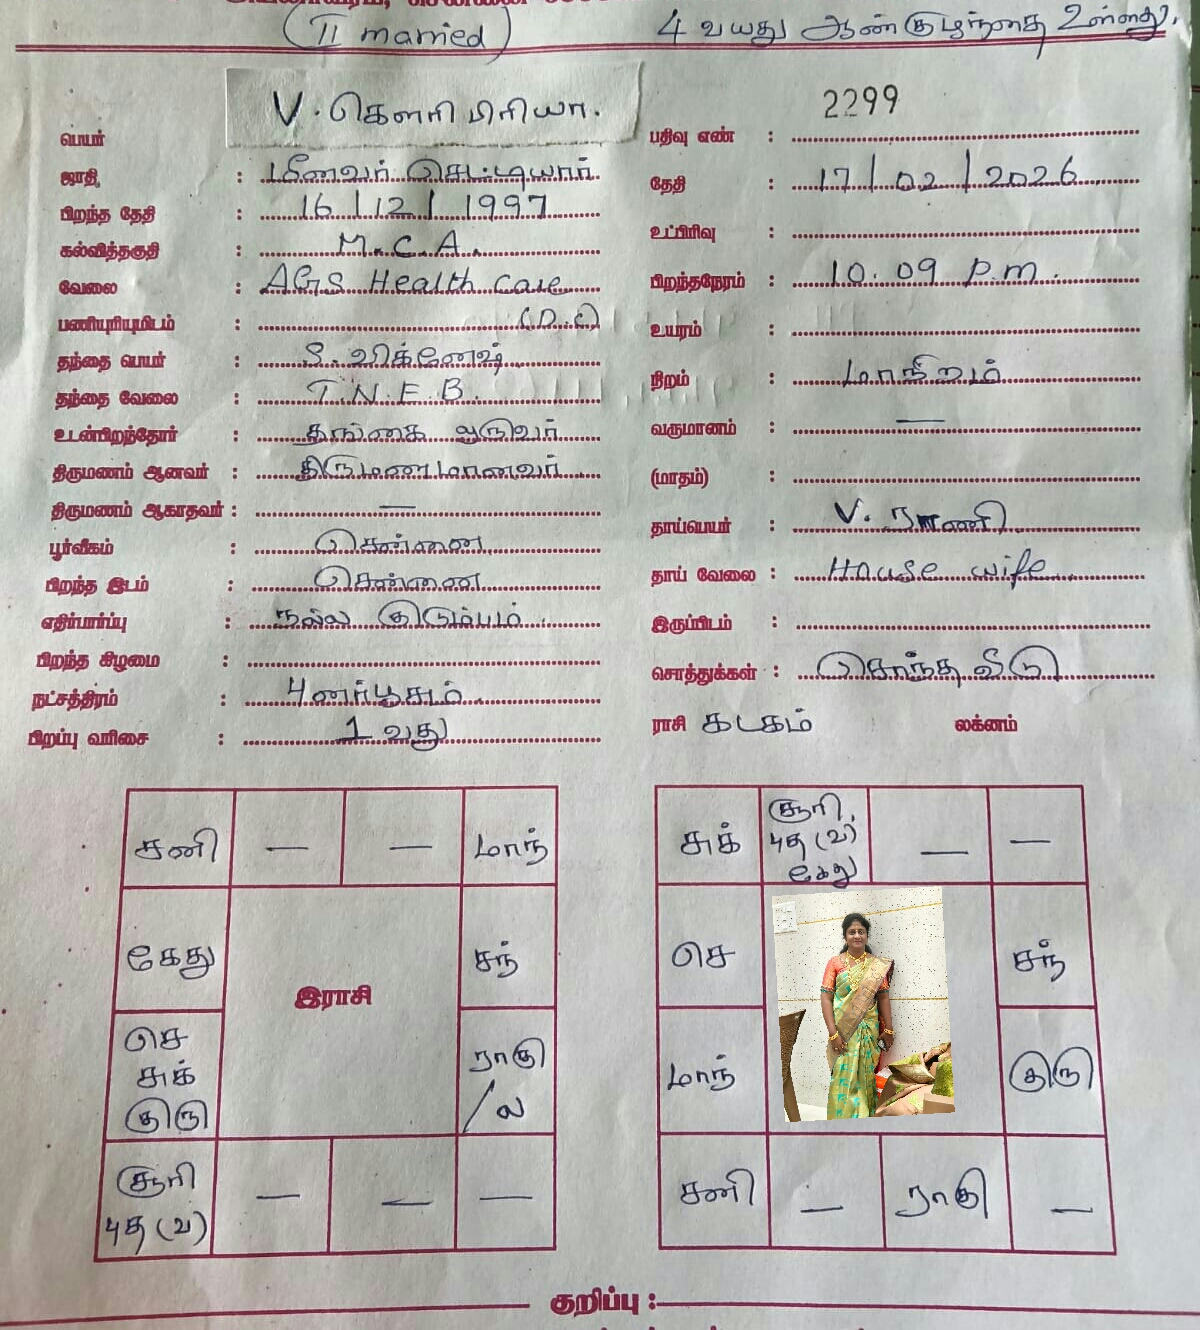 (II married)
4 வயது ஆண்குழந்தை உள்ளது.
பெயர் V. கௌரி பிரியா.
பதிவு எண் : 2299
ஜாதி : மீனவர் செட்டியார்
தேதி : 17/02/2026
பிறந்த தேதி : 16/12/1997
உட்பிரிவு :
கல்வித்தகுதி : M.C.A.
பிறந்தநேரம் : 10.09 p.m.
வேலை : AGS Health Care
பணியுரியுமிடம் : (D.C)
உயரம் :
தந்தை பெயர் : S. விக்னேஷ்
நிறம் : மாநிறம்
தந்தை வேலை : T.N.E.B.
வருமானம் : —
உடன்பிறந்தோர் : தங்கை ஒருவர்
(மாதம்) :
திருமணம் ஆனவர் : திருமணமானவர்
திருமணம் ஆகாதவர் : —
தாய்பெயர் : V. ராணி
பூர்வீகம் : சென்னை
தாய் வேலை : House wife
பிறந்த இடம் : சென்னை
எதிர்பார்ப்பு : நல்ல குடும்பம்
இருப்பிடம் :
பிறந்த கிழமை :
சொத்துக்கள் : சொந்த வீடு
நட்சத்திரம் : புனர்பூசம்
ராசி கடகம் லக்னம்
பிறப்பு வரிசை : 1 வது
சனி — — மாந்
கேது சந்
இராசி
செ
சுக்
குரு
ராகு
/ ல
சூரி
புத (வ)
— — —
சுக்
சூரி,
புத (வ)
கேது
— —
செ சந்
மாந் குரு
சனி — ராகு —
குறிப்பு :